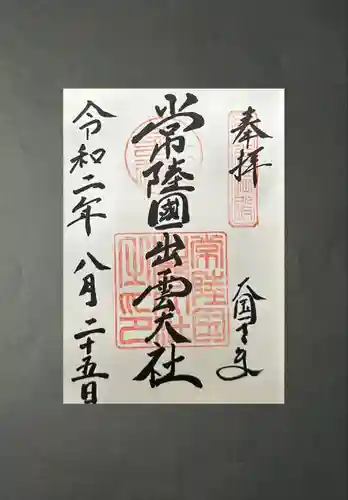 奉拝
大国さま
常陸國出雲大社
常陸国
出雲大社
之印
令和二年八月二十五日